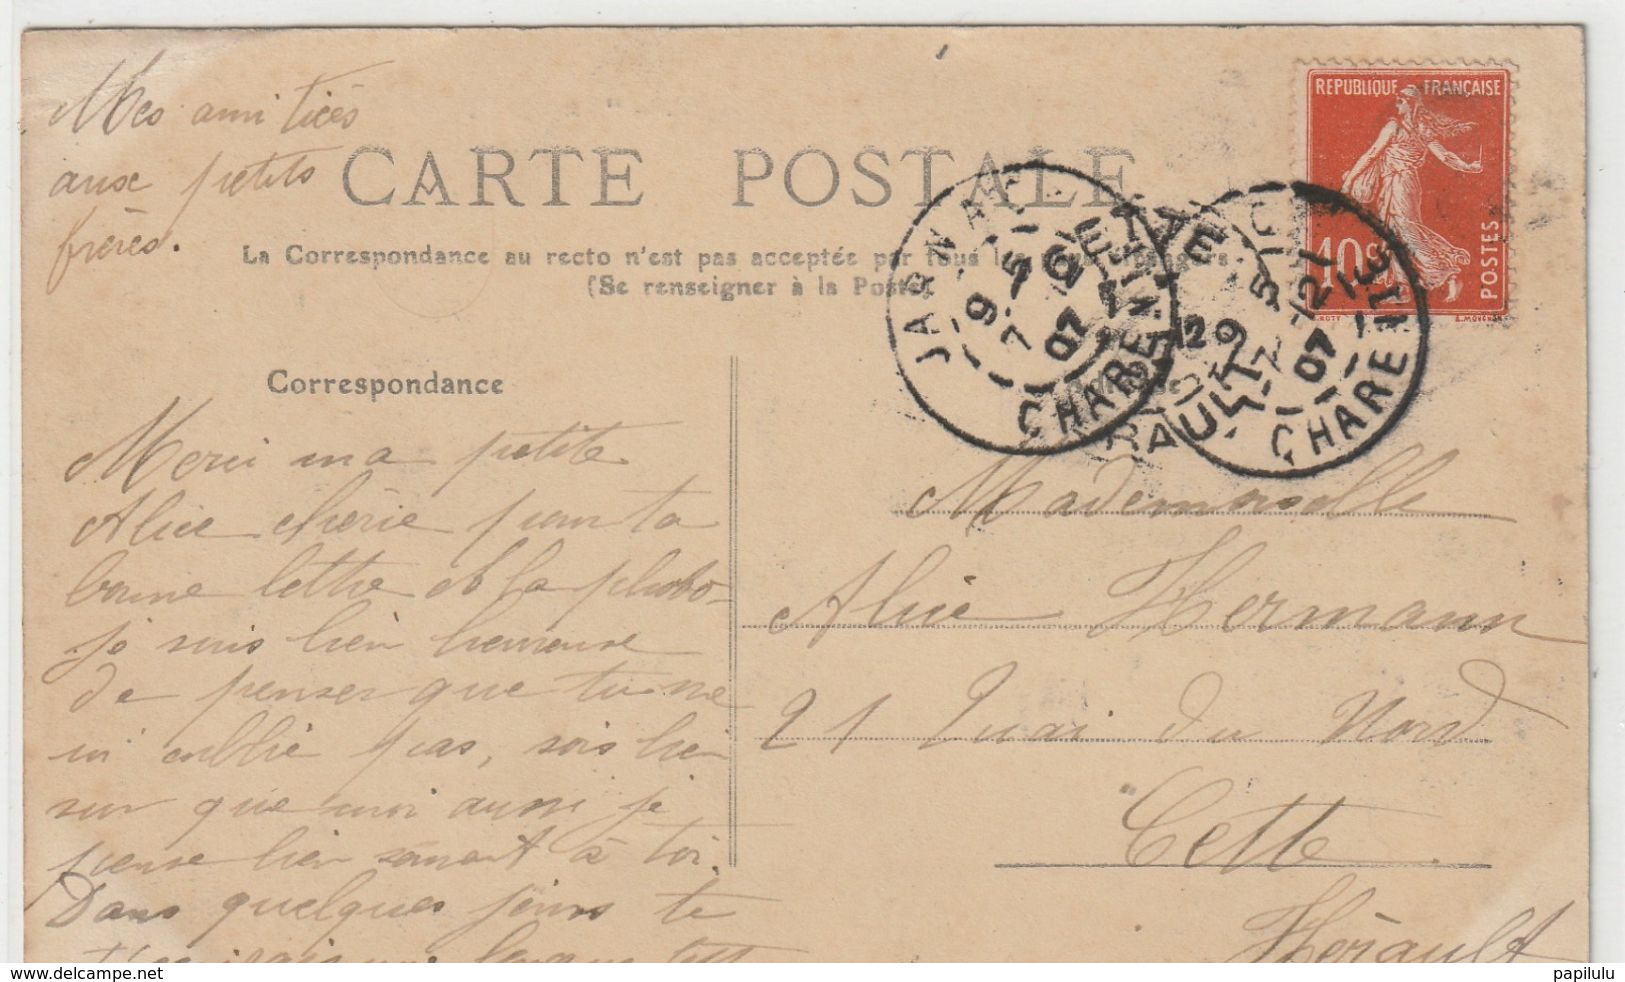 Mes amitiés
aux petits
frères.
CARTE POSTALE
La Correspondance au recto n'est pas acceptée par tous les
(Se renseigner à la Poste
REPUBLIQUE FRANÇAISE
10
POSTES
JARNAC
CHARENTE
9
7
07
CHARENTE
12
07
Correspondance
Merci ma petite
Alice chérie pour ta
bonne lettre et la photo
je suis bien heureuse
de penser que tu ne
m'oublie pas, sois bien
sur que moi aussi je
pense bien souvent à toi.
Dans quelques jours te
une longue
Mademoiselle
Alice Hermann
21 Quai du Nord
Cette
Hérault
delcampe.net
papilulu